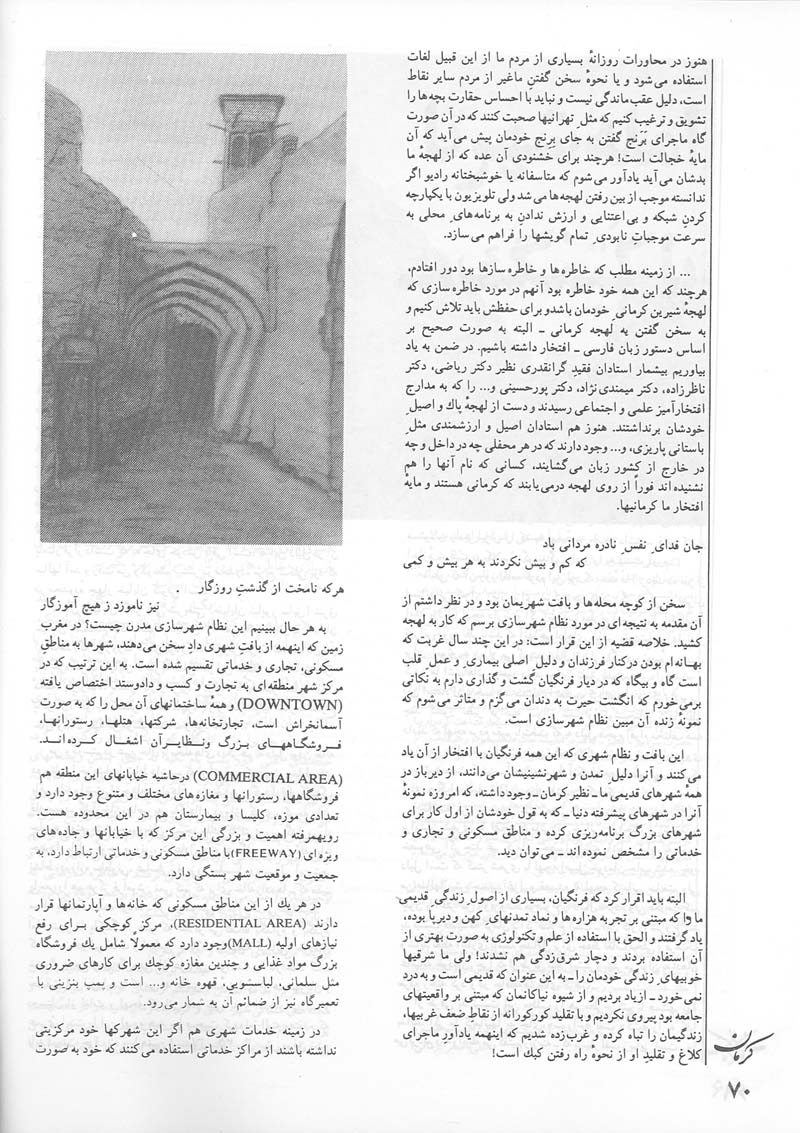 هنوز در محاورات روزانهٔ بسیاری از مردم ما از این قبیل لغات
استفاده می‌شود و یا نحوهٔ سخن گفتنِ ماغیر از مردم سایر نقاط
است، دلیل عقب‌ماندگی نیست و نباید با احساس حقارت بچه‌ها را
تشویق و ترغیب کنیم که مثلِ تهرانیها صحبت کنند که در آن صورت
گاه ماجرای بَرَنج گفتن به جای بِرِنج خودمان پیش می‌آید که آن
مایهٔ خجالت است! هرچند برای خشنودی آن عده که از لهجهٔ ما
بدشان می‌آید یادآور می‌شوم که متاسفانه یا خوشبختانه رادیو اگر
ندانسته موجب از بین رفتن لهجه‌ها می‌شد ولی تلویزیون با یکپارچه
کردنِ شبکه و بی‌اعتنایی و ارزش ندادن به برنامه‌هایِ محلی به
سرعت موجباتِ نابودیِ تمام گویشها را فراهم می‌سازد.
... از زمینه مطلب که خاطره‌ها و خاطره سازها بود دور افتادم،
هرچند که این همه خود خاطره بود آنهم در مورد خاطره‌سازی که
لهجهٔ شیرین کرمانیِ خودمان باشدو برای حفظش باید تلاش کنیم و
به سخن گفتن به لهجه کرمانی ـ البته به صورت صحیح بر
اساس دستور زبان فارسی ـ افتخار داشته باشیم. در ضمن به یاد
بیاوریم بیشمار استادان فقیدِ گرانقدری نظیر دکتر ریاضی، دکتر
ناظرزاده، دکتر میمندی‌نژاد، دکتر پورحسینی و... را که به مدارج
افتخارآمیز علمی و اجتماعی رسیدند و دست از لهجهٔ پاک و اصیلِ
خودشان برنداشتند. هنوز هم استادان اصیل و ارزشمندی مثلِ
باستانی پاریزی، و... وجود دارند که در هر محفلی چه در داخل و چه
در خارج از کشور زبان می‌گشایند، کسانی که نام آنها را هم
نشنیده‌اند فوراً از روی لهجه درمی‌یابند که کرمانی هستند و مایهٔ
افتخار ما کرمانیها.
جان فدایِ نفسِ نادره مردانی باد
که کم و بیش نکردند به هر بیش و کمی
سخن از کوچه محله‌ها و بافت شهریمان بود و در نظر داشتم از
آن مقدمه به نتیجه‌ای در مورد نظام شهرسازی برسم که کار به لهجه
کشید. خلاصه قضیه از این قرار است: در این چند سال غربت که
بهانه‌ام بودن درکنار فرزندان و دلیلِ اصلی بیماری و عملِ قلب
است گاه و بیگاه که در دیار فرنگیان گشت و گذاری دارم به نکاتی
برمی‌خورم که انگشت حیرت به دندان می‌گزم و متاثر می‌شوم که
نمونهٔ زنده آن مبین نظام شهرسازی است.
این بافت و نظام شهری که این همه فرنگیان با افتخار از آن یاد
می‌کنند و آنرا دلیلِ تمدن و شهرنشینیشان می‌دانند، از دیرباز در
همهٔ شهرهای قدیمی ما ـ نظیر کرمان ـ وجود داشته، که امروزه نمونهٔ
آنرا در شهرهای پیشرفته دنیا ـ که به قول خودشان از اول کار برای
شهرهای بزرگ برنامه‌ریزی کرده و مناطق مسکونی و تجاری و
خدماتی را مشخص نموده‌اند ـ می‌توان دید.
البته باید اقرار کرد که فرنگیان، بسیاری از اصولِ زندگیِ قدیمیِ
ما را که مبتنی بر تجربه هزاره‌ها و نماد تمدنهای کهن و دیرپا بوده،
یاد گرفتند و الحق با استفاده از علم و تکنولوژی به صورت بهتری از
آن استفاده بردند و دچار شرق‌زدگی هم نشدند! ولی ما شرقیها
خوبیهای زندگی خودمان را ـ به این عنوان که قدیمی است و به درد
نمی‌خورد ـ از یاد بردیم و از شیوه نیاکانمان که مبتنی بر واقعیتهای
جامعه بود پیروی نکردیم و با تقلید کورکورانه از نقاطِ ضعف غربیها،
زندگیمان را تباه کرده و غرب‌زده شدیم که اینهمه یادآورِ ماجرای
کلاغ و تقلیدِ او از نحوهٔ راه رفتن کبک است!
هرکه نامخت از گذشتِ روزگار
نیز ناموزد ز هیچ آموزگار
به هر حال ببینیم این نظام شهرسازی مدرن چیست؟ در مغرب
زمین که اینهمه از بافتِ شهری دادِ سخن می‌دهند، شهرها به مناطقِ
مسکونی، تجاری و خدماتی تقسیم شده است. به این ترتیب که در
مرکز شهر منطقه‌ای به تجارت و کسب و دادوستد اختصاص یافته
(DOWNTOWN) و همهٔ ساختمانهای آن محل را که به صورت
آسمانخراش است، تجارتخانه‌ها، شرکتها، هتلها، رستورانها،
فروشگاههای بزرگ ونظایرآن اشغال کرده‌اند.
(COMMERCIAL AREA) درحاشیه خیابانهای این منطقه هم
فروشگاهها، رستورانها و مغازه‌های مختلف و متنوع وجود دارد و
تعدادی موزه، کلیسا و بیمارستان هم در این محدوده هست.
رویهمرفته اهمیت و بزرگی این مرکز که با خیابانها و جاده‌های
ویژه‌ای (FREEWAY) با مناطق مسکونی و خدماتی ارتباط دارد، به
جمعیت و موقعیت شهر بستگی دارد.
در هر یك از این مناطق مسکونی که خانه‌ها و آپارتمانها قرار
دارند (RESIDENTIAL AREA)، مرکز کوچکی برای رفع
نیازهای اولیه (MALL)وجود دارد که معمولاً شامل یك فروشگاه
بزرگ مواد غذایی و چندین مغازه کوچك برای کارهای ضروری
مثل سلمانی، لباسشویی، قهوه خانه و... است و پمپ بنزینی با
تعمیرگاه نیز از ضمائم آن به شمار می‌رود.
در زمینه خدمات شهری هم اگر این شهرکها خود مرکزیتی
نداشته باشند از مراکز خدماتی استفاده می‌کنند که خود به صورت
کرمان
۷۰